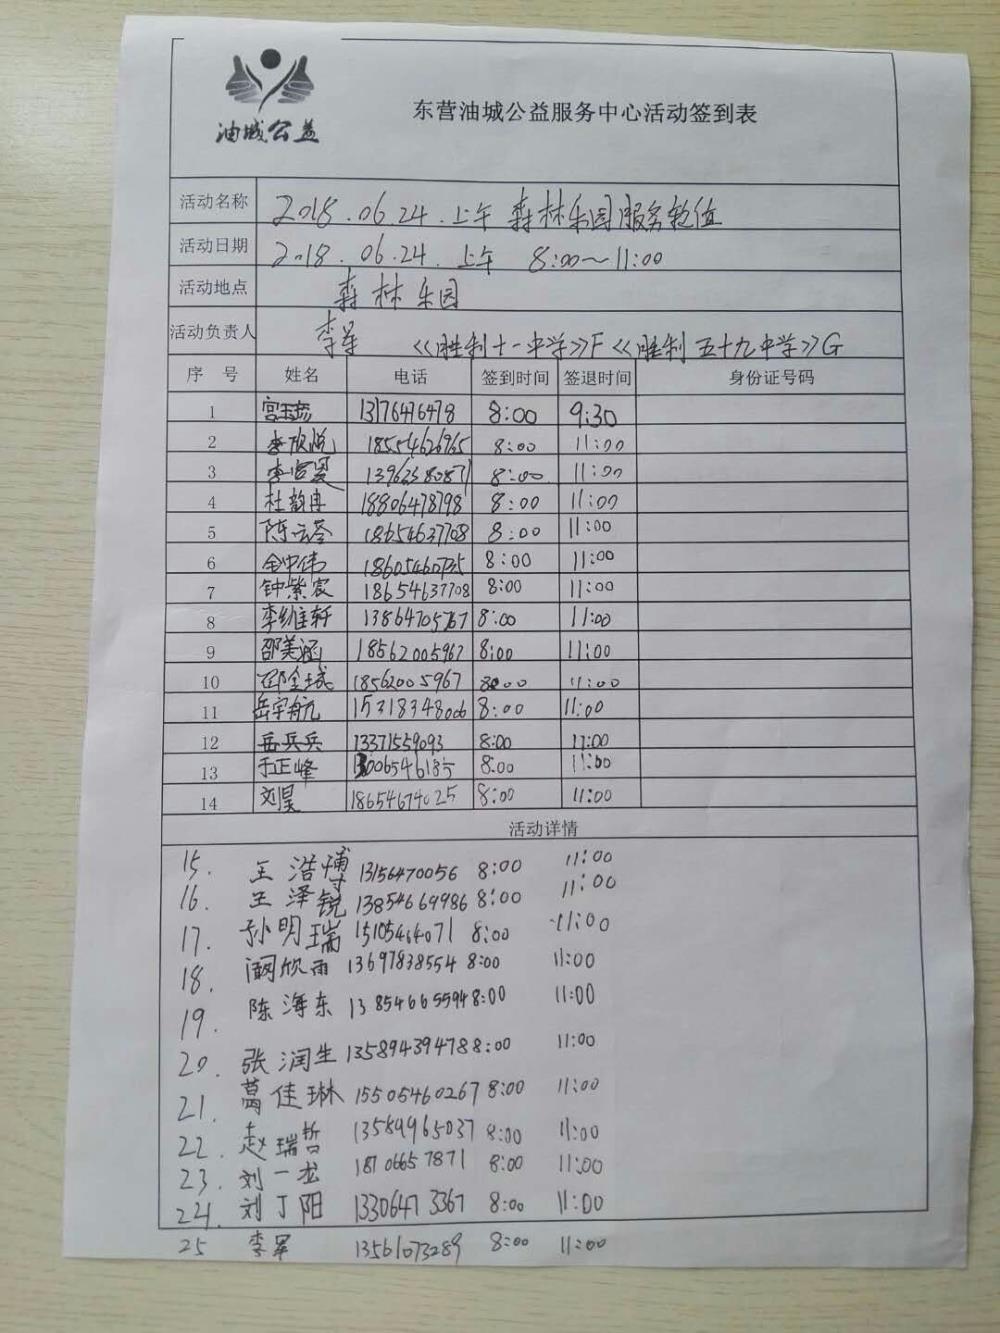 油城公益
东营油城公益服务中心活动签到表
活动名称 2018.06.24.上午 森林乐园服务
活动日期 2018.06.24.上午 8:00~11:00
活动地点 森林乐园
活动负责人 李军 《胜利十一中学》F《胜利五十九中学》G
序号 姓名 电话 签到时间 签退时间 身份证号码
1 13176476478 8:00 9:30
2 李欣悦 18554626965 8:00 11:00
3 13963580871 8:00 11:00
4 杜韵冉 18806478798 8:00 11:00
5 18654637708 8:00 11:00
6 18605460735 8:00 11:00
7 钟紫宸 18654637708 8:00 11:00
8 李维轩 13864705767 8:00 11:00
9 邵美涵 18562005967 8:00 11:00
10 18562005967 8:00 11:00
11 岳宇航 15318348006 8:00 11:00
12 岳兵兵 13371559093 8:00 11:00
13 于正峰 13006546185 8:00 11:00
14 刘昊 18654674025 8:00 11:00
活动详情
15. 王浩博 13156470056 8:00 11:00
16. 王泽锐 13854669986 8:00 11:00
17. 孙明瑞 15105464071 8:00 11:00
18. 阚欣雨 13697838554 8:00 11:00
19. 陈海东 13854665594 8:00 11:00
20. 张润生 13589439478 8:00 11:00
21. 葛佳琳 15505460267 8:00 11:00
22. 赵瑞哲 13589965037 8:00 11:00
23. 刘一龙 18706657871 8:00 11:00
24. 刘丁阳 13306473367 8:00 11:00
25 李军 13561073289 8:00 11:00